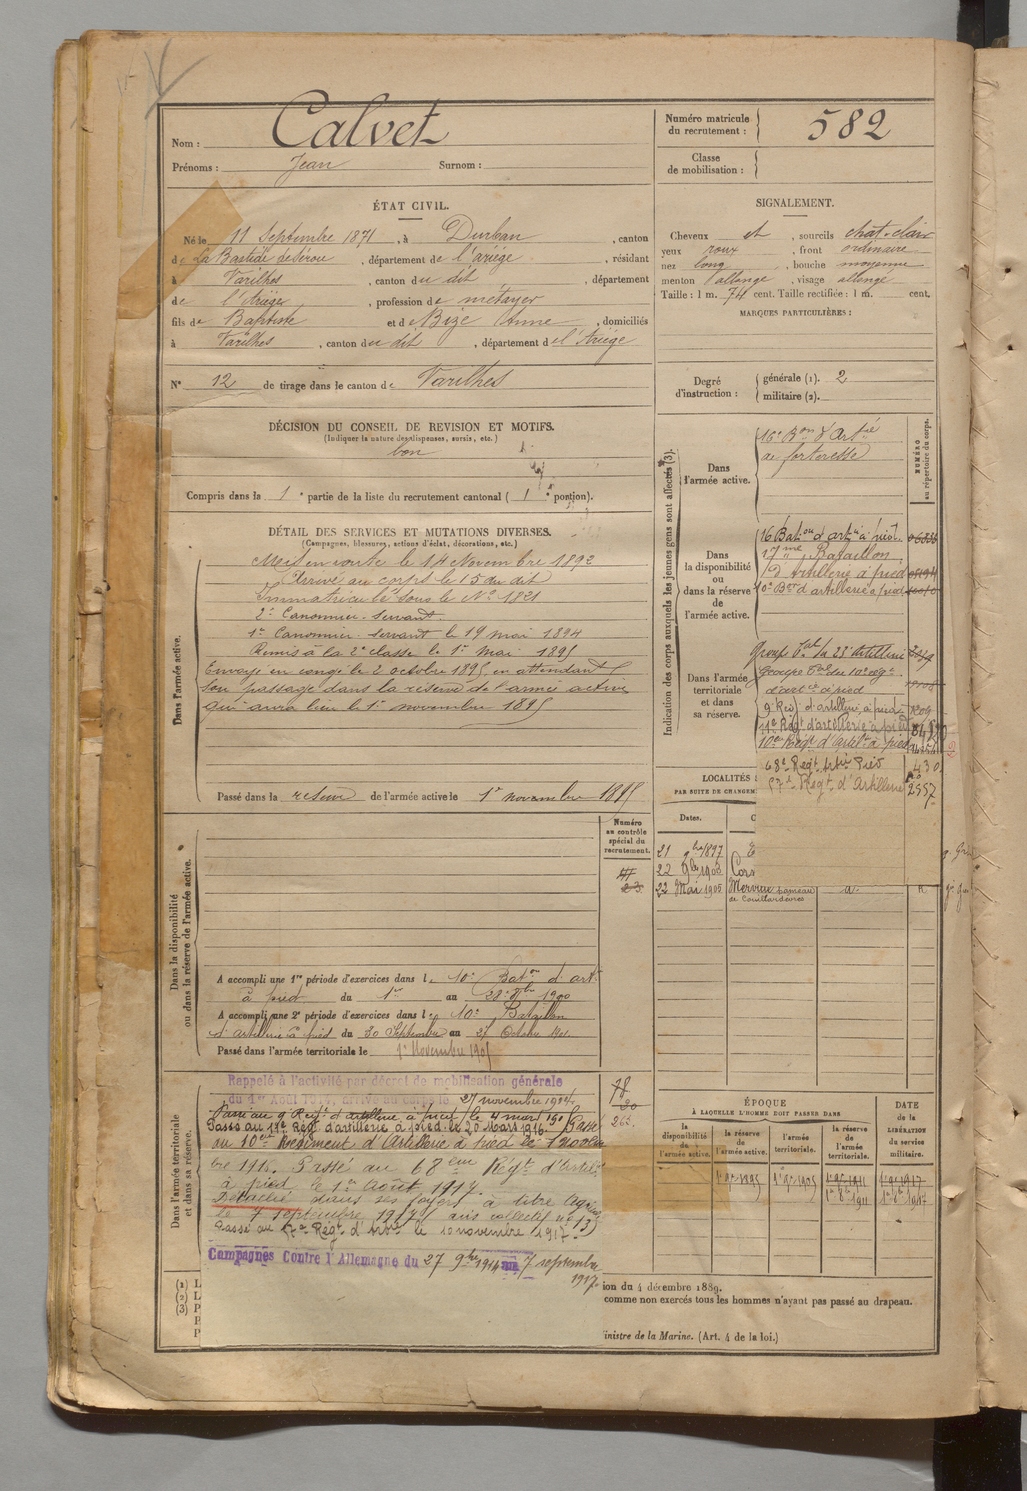 Nom : Calvet
Prénoms : Jean Surnom :
Numéro matricule du recrutement : 582
Classe de mobilisation :
ÉTAT CIVIL.
Né le 11 Septembre 1871, à Durban, canton
de La Bastide de Sérou, département de l'ariége, résidant
à Varilhes, canton du dit, département
de l'Ariège, profession de métayer
fils de Baptiste et de Bize Anne, domiciliés
à Varilhes, canton du dit, département de l'Ariége
N° 12 de tirage dans le canton de Varilhes
SIGNALEMENT.
Cheveux et, sourcils chat. clair
yeux roux, front ordinaire
nez long, bouche moyenne
menton allongé, visage allongé
Taille : 1 m. 74 cent. Taille rectifiée : 1 m. cent.
MARQUES PARTICULIÈRES :
Degré d'instruction : générale (1). 2
militaire (2).
DÉCISION DU CONSEIL DE REVISION ET MOTIFS.
(Indiquer la nature des dispenses, sursis, etc.)
bon
Compris dans la 1e partie de la liste du recrutement cantonal (1e portion).
DÉTAIL DES SERVICES ET MUTATIONS DIVERSES.
(Campagnes, blessures, actions d'éclat, décorations, etc.)
Dans l'armée active.
Mis en route le 14 Novembre 1892
Arrivé au corps le 15 du dit
Immatriculé sous le N° 1821
2e Canonnier. Servant.
1er Canonnier. servant le 19 mai 1894
Remis à la 2e classe le 1er mai 1895
Envoyé en congé le 2 octobre 1895 en attendant
son passage dans la réserve de l'armée active
qui aura lieu le 1er novembre 1895
Passé dans la réserve de l'armée active le 1er novembre 1895
Indication des corps auxquels les jeunes gens sont affectés (3).
NUMÉRO au répertoire du corps.
Dans l'armée active.
16e Bon d'Artie
de forteresse
Dans la disponibilité ou dans la réserve de l'armée active.
16 Baton d'artie à pied.
17me Bataillon
d'Artillerie à pied
10e Bon d'artillerie à pied
Dans l'armée territoriale et dans sa réserve.
Groupe Tal du 23e artillerie
Groupe Tal du 10e régt
d'artie à pied
9e Régt d'artillerie à pied
11e Régt d'artillerie à pied
10e Régt d'Artilie à pied
68e Regt Artie Pied 430
57e Régt d'Artillerie 2557
LOCALITÉS
PAR SUITE DE CHANGEM
Dates.
21 9bre 1897
22 9bre 1903 Cors
22 Mai 1905 Mervieu hameau
de Couillardoires
Numéro au contrôle spécial du recrutement.
Dans la disponibilité ou dans la réserve de l'armée active.
A accompli une 1re période d'exercices dans le 10e Baton d'art
à pied du 1er au 28 8bre 1900
A accompli une 2e période d'exercices dans le 10e Bataillon
d'artillerie à pied du 30 Septembre au 27 Octobre 190
Passé dans l'armée territoriale le 1er Novembre 1905
Dans l'armée territoriale et dans sa réserve.
Rappelé à l'activité par décret de mobilisation générale
du 1er Août 1914, arrivé au corps le 27 novembre 1914
Passé au 9e Régt d'artillerie à pied le 4 mars 19
Passé au 11e Régt d'artillerie à pied le 20 Mars 1916. Passé
au 10eme Régiment d'Artillerie à pied le 1 novem
bre 1916. Passé au 68eme Régt d'Artilie
à pied le 1er Août 1917.
Détaché dans ses foyers à titre Agricole
le 7 septembre 1917 avis collectif n° 13
Passé au 57e Régt d'artie le 10 novembre 1917
Campagnes Contre l'Allemagne du 27 9bre 1914 au 7 septembre
1917.
78
20
263
ÉPOQUE
À LAQUELLE L'HOMME DOIT PASSER DANS
la disponibilité de l'armée active.
la réserve de l'armée active.
l'armée territoriale.
la réserve de l'armée territoriale.
DATE de la LIBÉRATION du service militaire.
1er 9bre 1895 1er 9bre 1905 1er 9bre 1911 1er 9bre 1917
1er 8bre 1911 1er 8bre 1917
(1) L
(2) L
(3) P
ion du 4 décembre 1889.
comme non exercés tous les hommes n'ayant pas passé au drapeau.
inistre de la Marine. (Art. 4 de la loi.)